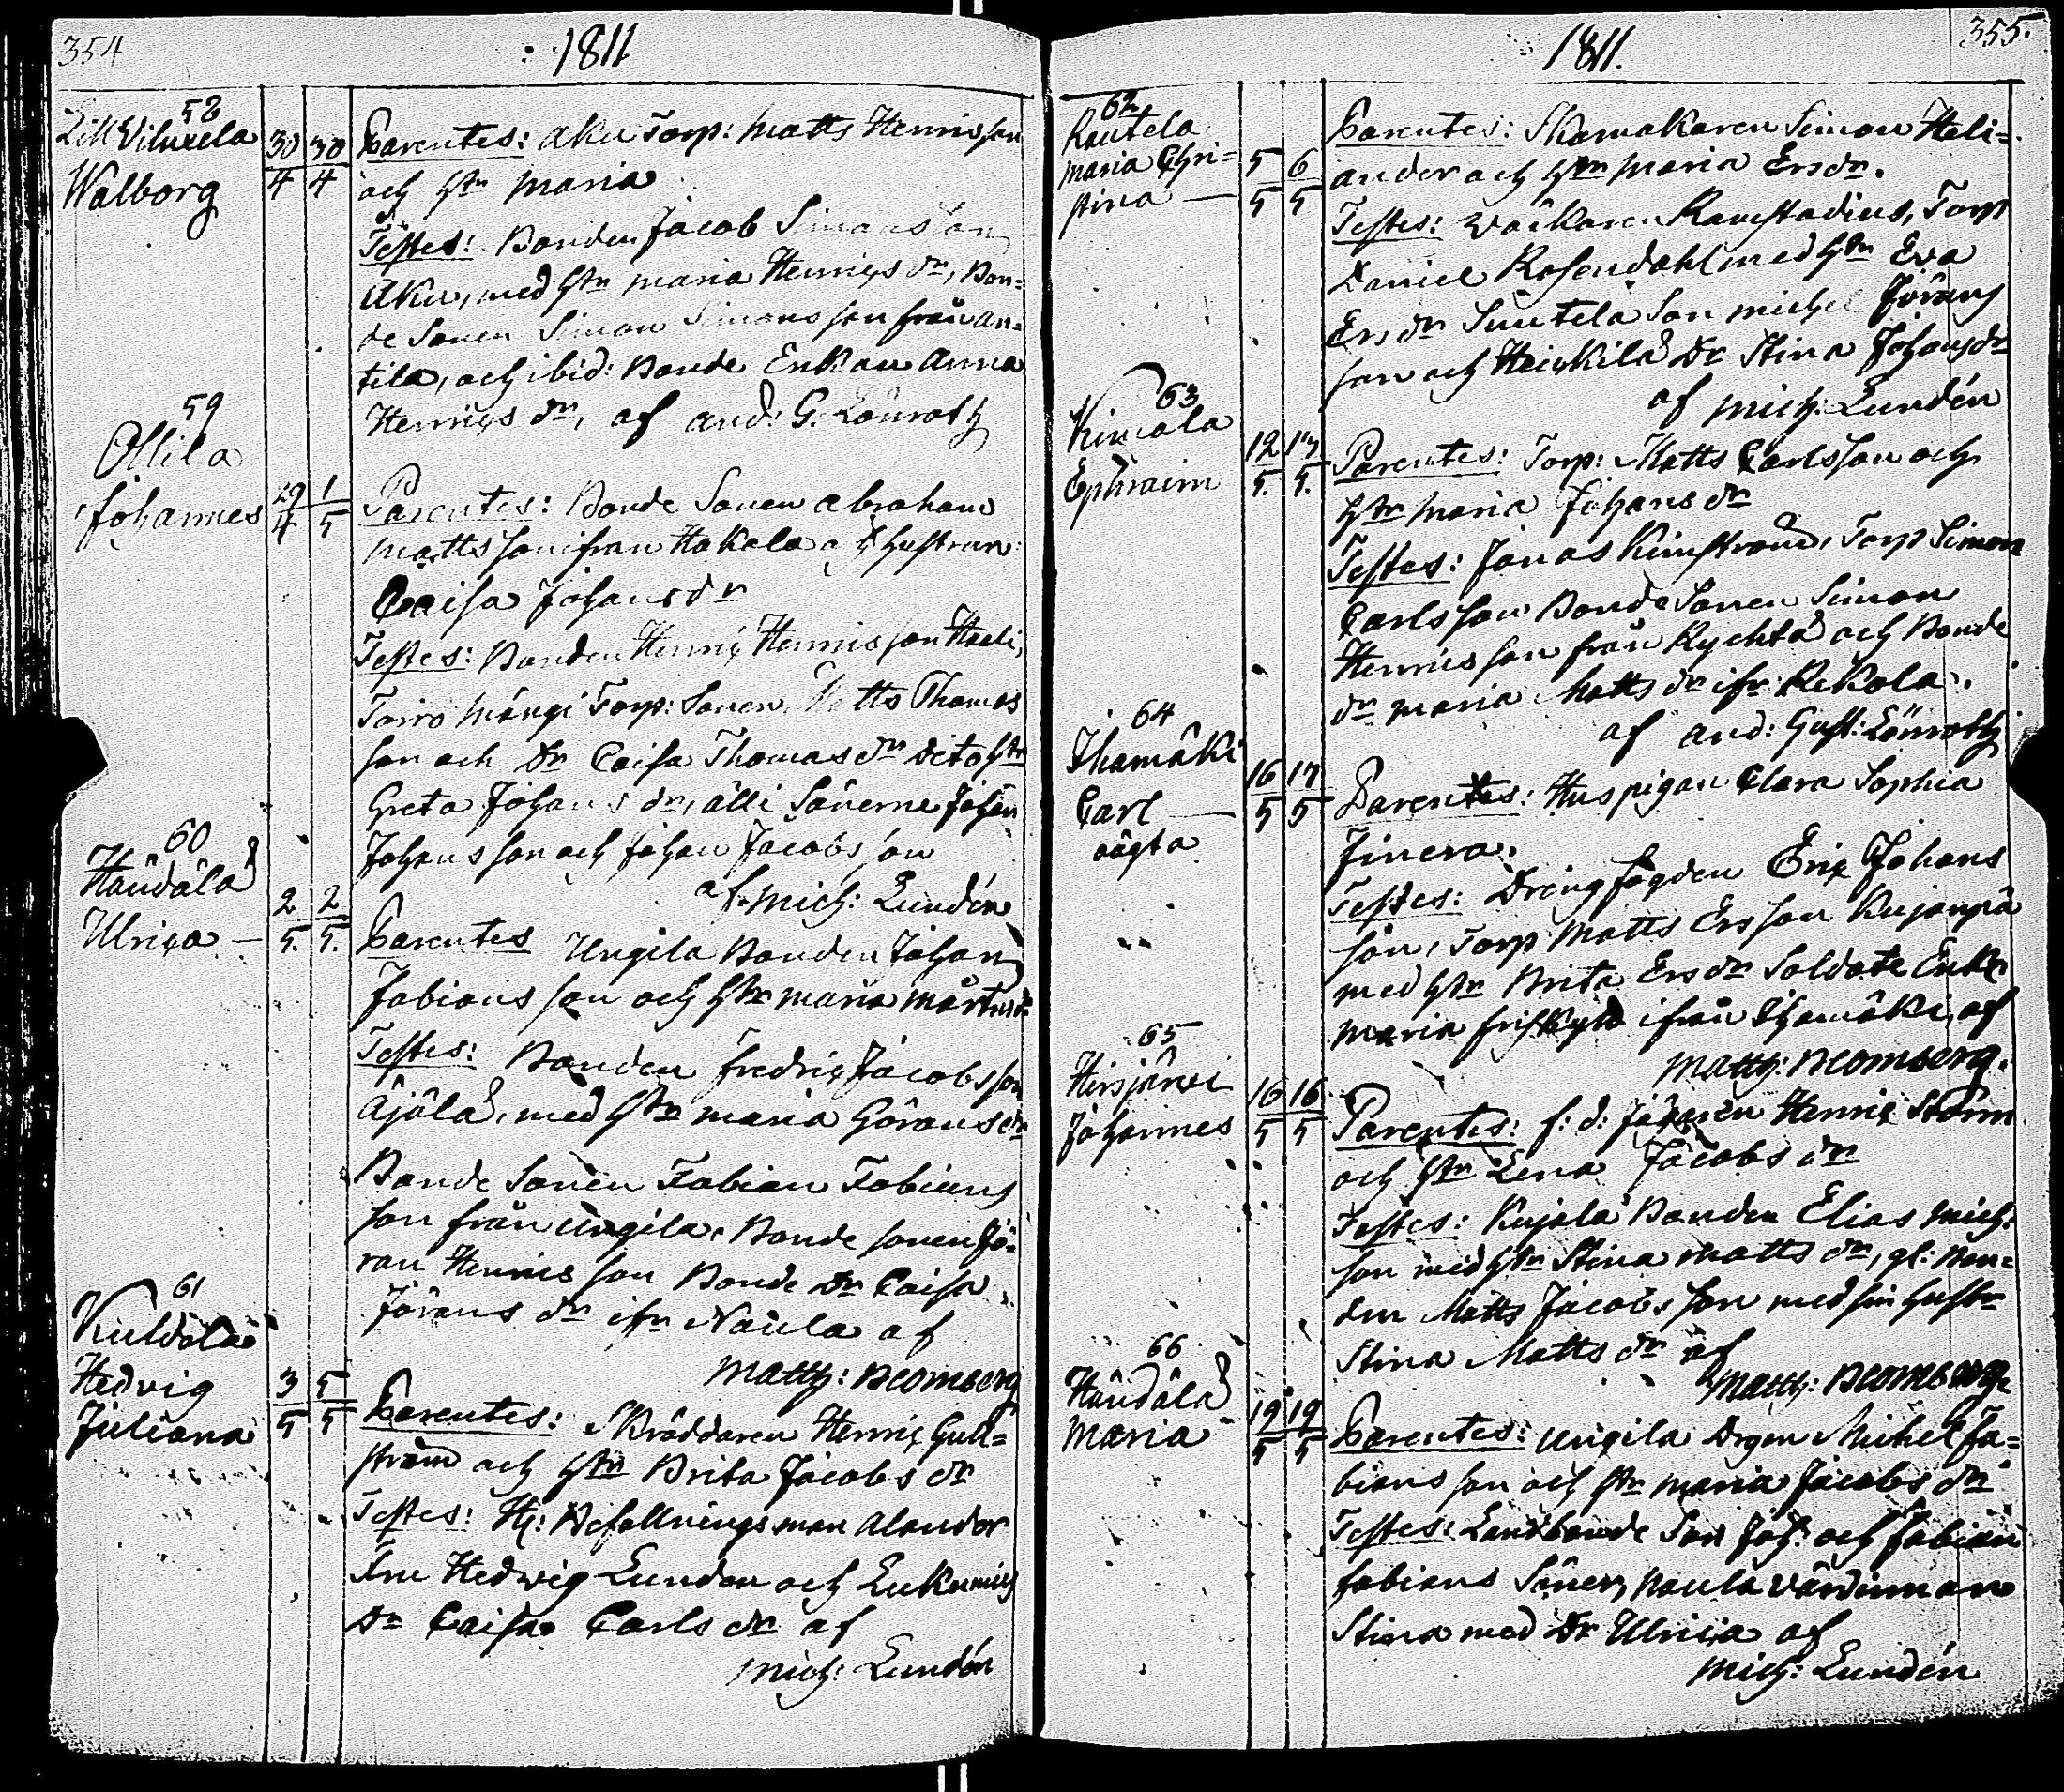 354
1811
58
Lill Viluxela
Walborg
30 30
4 4
Parentes: Aku Torp: Matts Henrisson
och hstr Maria
Testes: Bonden Jacob Simonsson
Aku, med hstr Maria Henrics dr, Bon=
de Sonen Simon Simonsson från an=
tila, och ibid: Bonde Enkan Anna
Henrics dr, af And: G. Lönroth
59
Ollila
Johannes
29 1
4 5
Parentes: Bonde Sonen Abraham
Mattsson ifrån Hakala och hustrun
Caisa Johansdr
Testes: Bonden Henric Henrisson
Torp: Sonen Matts Thomas
son och Dr Caisa Thomas dr
Greta Johans dr, älli Sönerne Johan
Johansson och Johan Jacobsson
af Mich: Lundén
60
Händälä
Ulrica
2 2
5. 5.
Parentes Ungila Bonden Johan
Fabians son och hstr Maria Mårtensdr
Testes: Bonden Fredric Jacobsson
Äjälä, med hstr Maria Göransdr
Bonde Sonen Fabian Fabians
son från Ungila, Bonde sonen Jö=
ran Henrics son Bonde Dr Caisa
Jörans dr ifr Naula af
Matth: Blomberg
61
Kuldola
Hedvig
Juliana
3 5
5 5
Parentes: Skräddaren Henric Gull=
ström och hstr Brita Jacobs dr
Testes: Hr: Befallningsman Alander
Fru Hedwig Lundan och
Dr Caisa Carls dr af
Mich: Lundén
1811.
355.
62
Rautela
Maria Chri=
stina
5 6
5 5
Parentes: Skomakaren Simon Heli=
ander och hstr Maria Ersdr.
Testes: Ramstadius, Torp
Daniel Rosendahl med hstr Eva
Ersdr Suutela Son Michel Jörans
son och Heickilä Dr Stina Johansdr
af Mich: Lundén
63
Kimala
Ephraim
12 17
5. 5.
Parentes: Torp: Matts Carlsson och
hstr Maria Johans dr
Testes: Jonas Kimstrand, Torp Simon
Carlsson Bonde Sonen Simon
Henrics son från Rychtä och Bonde
dr Maria Matts dr ifr: Rekola.
af And: Gust: Lönroth
64
Ihamäki
Carl
oägta
16 17
5 5
Parentes: Huspigan Clara Sophia
Finera.
Testes: Dreng fogden Eric Johans
son, Torp Matts Ersson Kujanpä
med hstr Brita Ersdr Soldate Enk:
Maria friskytt ifrån Ihamäki, af
Matth: Blomberg.
65
Hirsjärvi
Johannes
16 16
5 5
Parentes: f: d: Jägaren Henric Storm
och hstr Lena Jacobs dr
Testes: Kujala Bonden Elias Mich:
son med hstr Stina Matts dr, gl: Bon=
den Matts Jacobsson med sin hustr
Stina Matts dr af
Matth: Blomberg.
66
Händälä
Maria
19 19
5 5
Parentes: Ungila Drgen Michel Fa=
bians son och hstr Maria Jacobs dr
Testes: Landbonde Son Joh: och Fabian
Fabians Söner, Naula värdinnan
Stina med Dr Ulrica af
Mich: Lundén